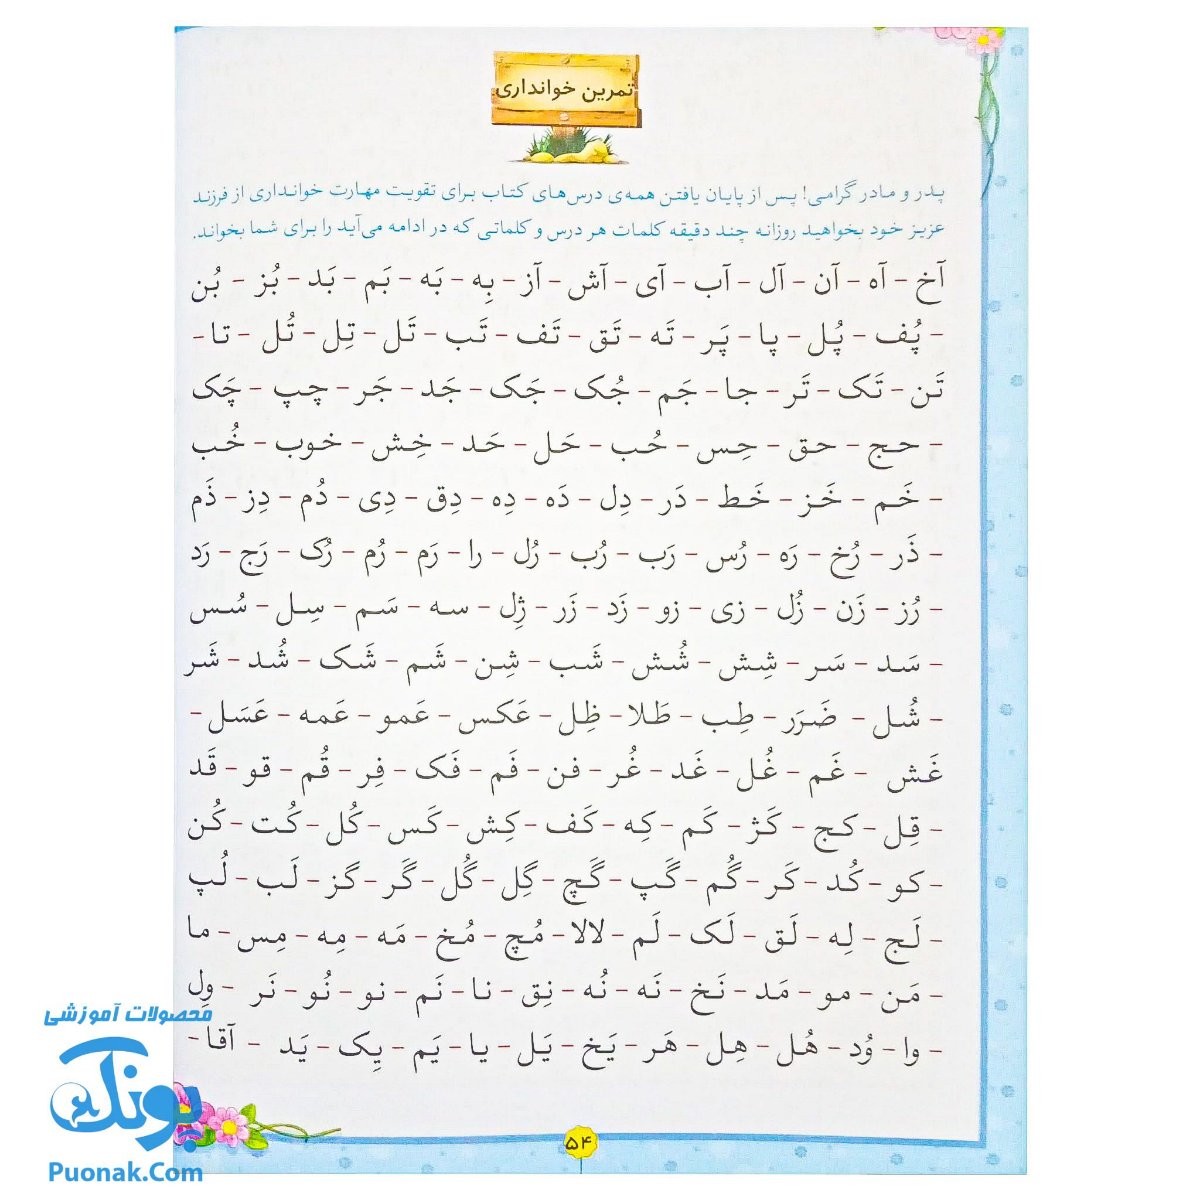 تمرین خوانداری
پدر و مادر گرامی! پس از پایان یافتن همه‌ی درس‌های کتاب برای تقویت مهارت خوانداری از فرزند
عزیز خود بخواهید روزانه چند دقیقه کلمات هر درس و کلماتی که در ادامه می‌آید را برای شما بخواند.
آخ - آه - آن - آل - آب - آی - آش - آز - بِه - بَه - بَم - بَد - بُز - بُن
- پُف - پُل - پا - پَر - تَه - تَق - تَف - تَب - تَل - تِل - تُل - تا -
تَن - تَک - تَر - جا - جَم - جُک - جَک - جَد - جَر - چپ - چَک
- حج - حق - حِس - حُب - حَل - حَد - خِش - خوب - خُب
- خَم - خَز - خَط - دَر - دِل - دَه - دِه - دِق - دِی - دُم - دِز - ذَم
- ذَر - رُخ - رَه - رُس - رَب - رُب - رُل - را - رَم - رُم - رُک - رَج - رَد
- رُز - زَن - زُل - زی - زو - زَد - زَر - ژِل - سه - سَم - سِل - سُس
- سَد - سَر - شِش - شُش - شَب - شِن - شَم - شَک - شُد - شَر
- شُل - ضَرَر - طِب - طَلا - ظِل - عَکس - عَمو - عَمه - عَسَل -
غَش - غَم - غُل - غَد - غُر - فن - فَم - فَک - فِر - قُم - قو - قَد
- قِل - کج - کَژ - کَم - کِه - کَف - کِش - کَس - کُل - کُت - کُن
- کو - کُد - کَر - گُم - گَپ - گَچ - گِل - گُل - گَر - گز - لَب - لُپ
- لَج - لِه - لَق - لَک - لَم - لالا - مُچ - مُخ - مَه - مِه - مِس - ما
- مَن - مو - مَد - نَخ - نَه - نُه - نِق - نا - نَم - نو - نُو - نَر - وِل
- وا - وُد - هُل - هِل - هَر - یَخ - یَل - یا - یَم - یِک - یَد - آقا -
۵۴
محصولات آموزشی
پونک
Puonak.Com